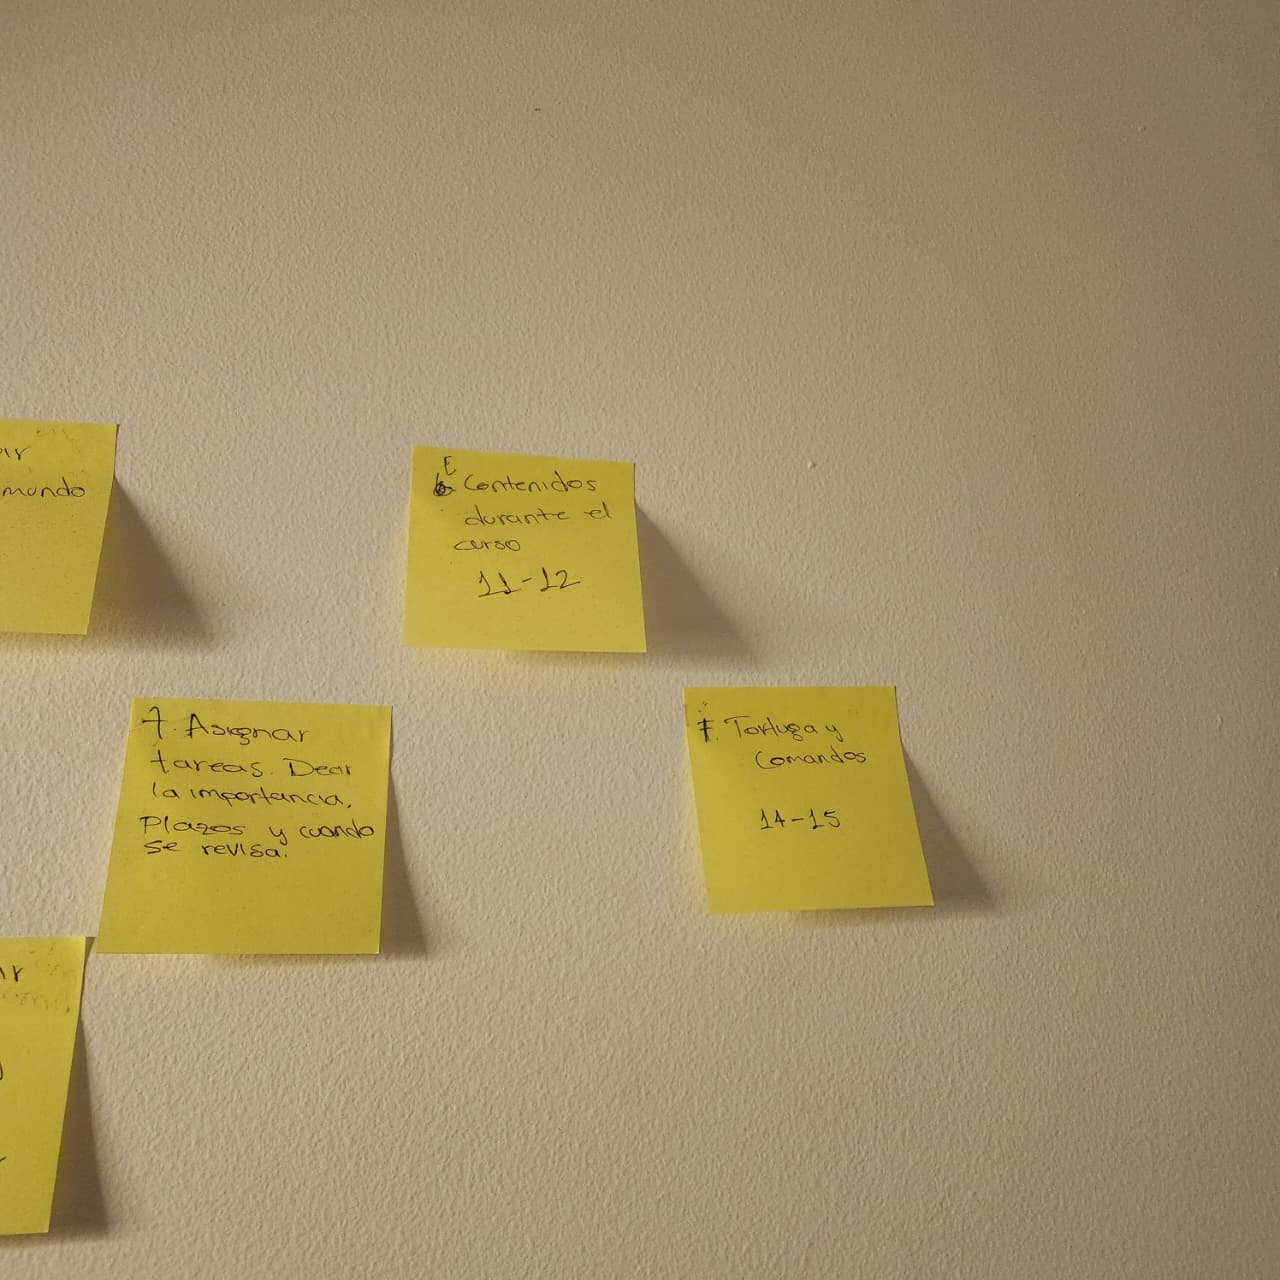 mundo
E
6 Contenidos
durante el
curso
11-12
7. Asignar
tareas. Decir
la importancia,
Plazos y cuando
se revisa.
F. Tortuga y
Comandos
14-15